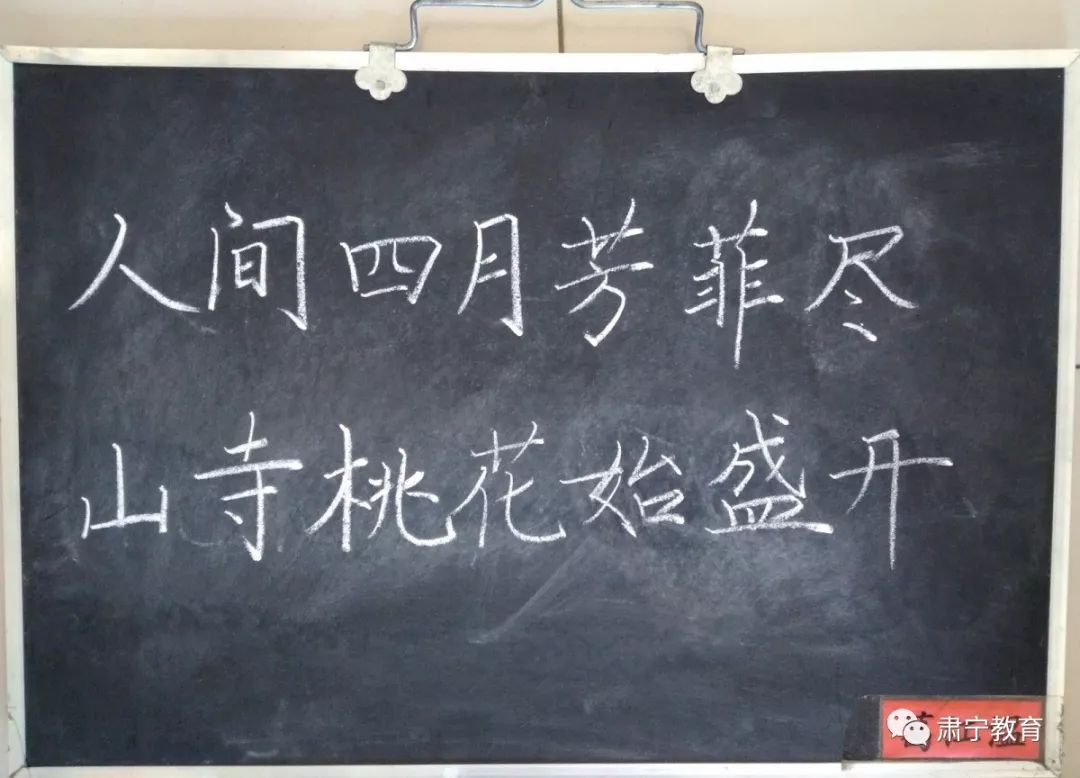 人间四月芳菲尽
山寺桃花始盛开
肃宁教育